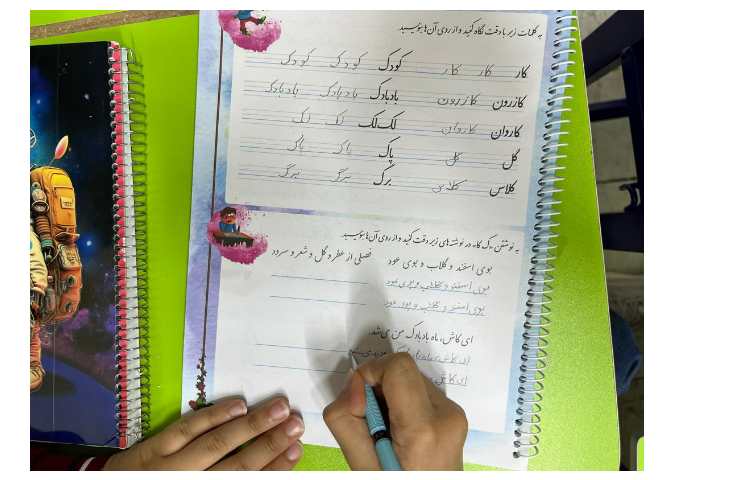 به کلمات زیر با دقت نگاه کنید و از روی آن‌ها بنویسید
کار کار کار کودک کودک کودک
کازرون کازرون بادبادک بادبادک بادبادک
کاروان کاروان لک‌لک لک لک
گل گل پاک پاک پاک
کلاس کلاس برگ برگ برگ
به نوشتن ک گ در نوشته‌های زیر دقت کنید و از روی آن‌ها بنویسید
بوی اسفند و گلاب و بوی عود فصلی از عطر و گل و شعر و سرود
بوی اسفند و گلاب و بوی عود
بوی اسفند و گلاب و بوی عود
ای کاش، ماه بادبادک من می‌شد.
ای کاش، ماه
ای کاش